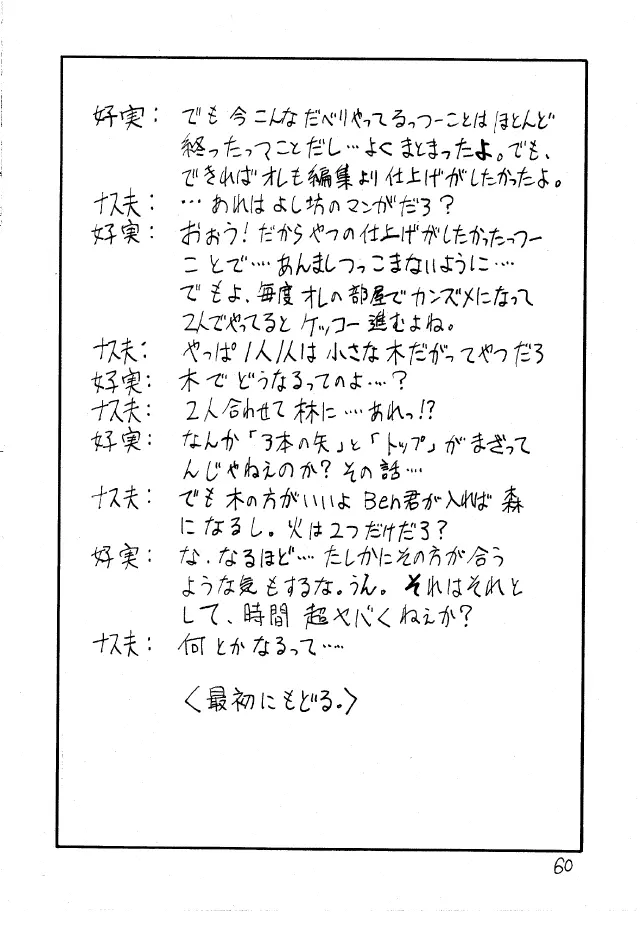 好実: でも今こんなだべりやってるっつーことはほとんど
終ったってことだし…よくまとまったよ。でも、
できればオレも編集より仕上げがしたかったよ。
ナス夫: …あれはよし坊のマンガだろ？
好実: おぉう！だからやつの仕上げがしたかったっつー
ことで‥‥あんましつっこまないように‥‥
でもよ、毎度オレの部屋でカンズメになって
2人でやってるとケッコー進むよね。
ナス夫: やっぱ1人1人は小さな木だがってやつだろ
好実: 木でどうなるってのよ‥‥？
ナス夫: 2人合わせて林に‥‥あれっ!?
好実: なんか「3本の矢」と「トップ」がまざって
んじゃねえのか？その話‥‥
ナス夫: でも木の方がいいよBen君が入れば森
になるし。火は2つだけだろ？
好実: な、なるほど‥‥たしかにその方が合う
ような気もするな。うん。それはそれと
して、時間超ヤバくねぇか？
ナス夫: 何とかなるって‥‥
〈最初にもどる。〉
60